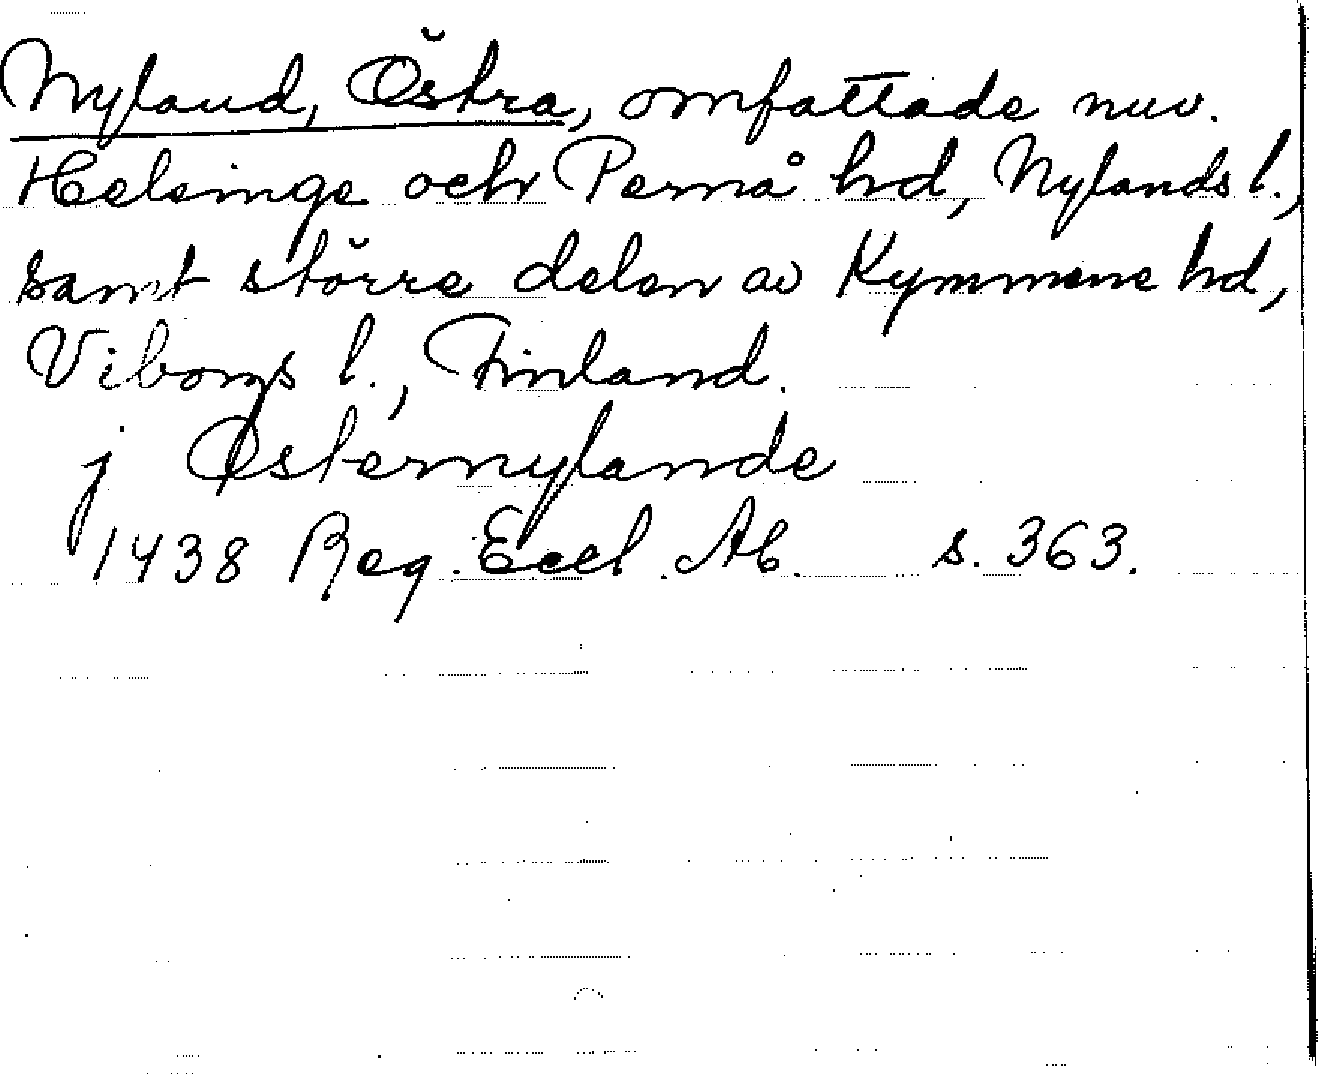 Nyland, Östra, omfattade nuv.
Helsinge och Pernå hd, Nylands l.,
samt större delen av Kymmene hd,
Viborgs l., Finland.
j Østernylande
1438 Reg. Eccl. Ab. s. 363.